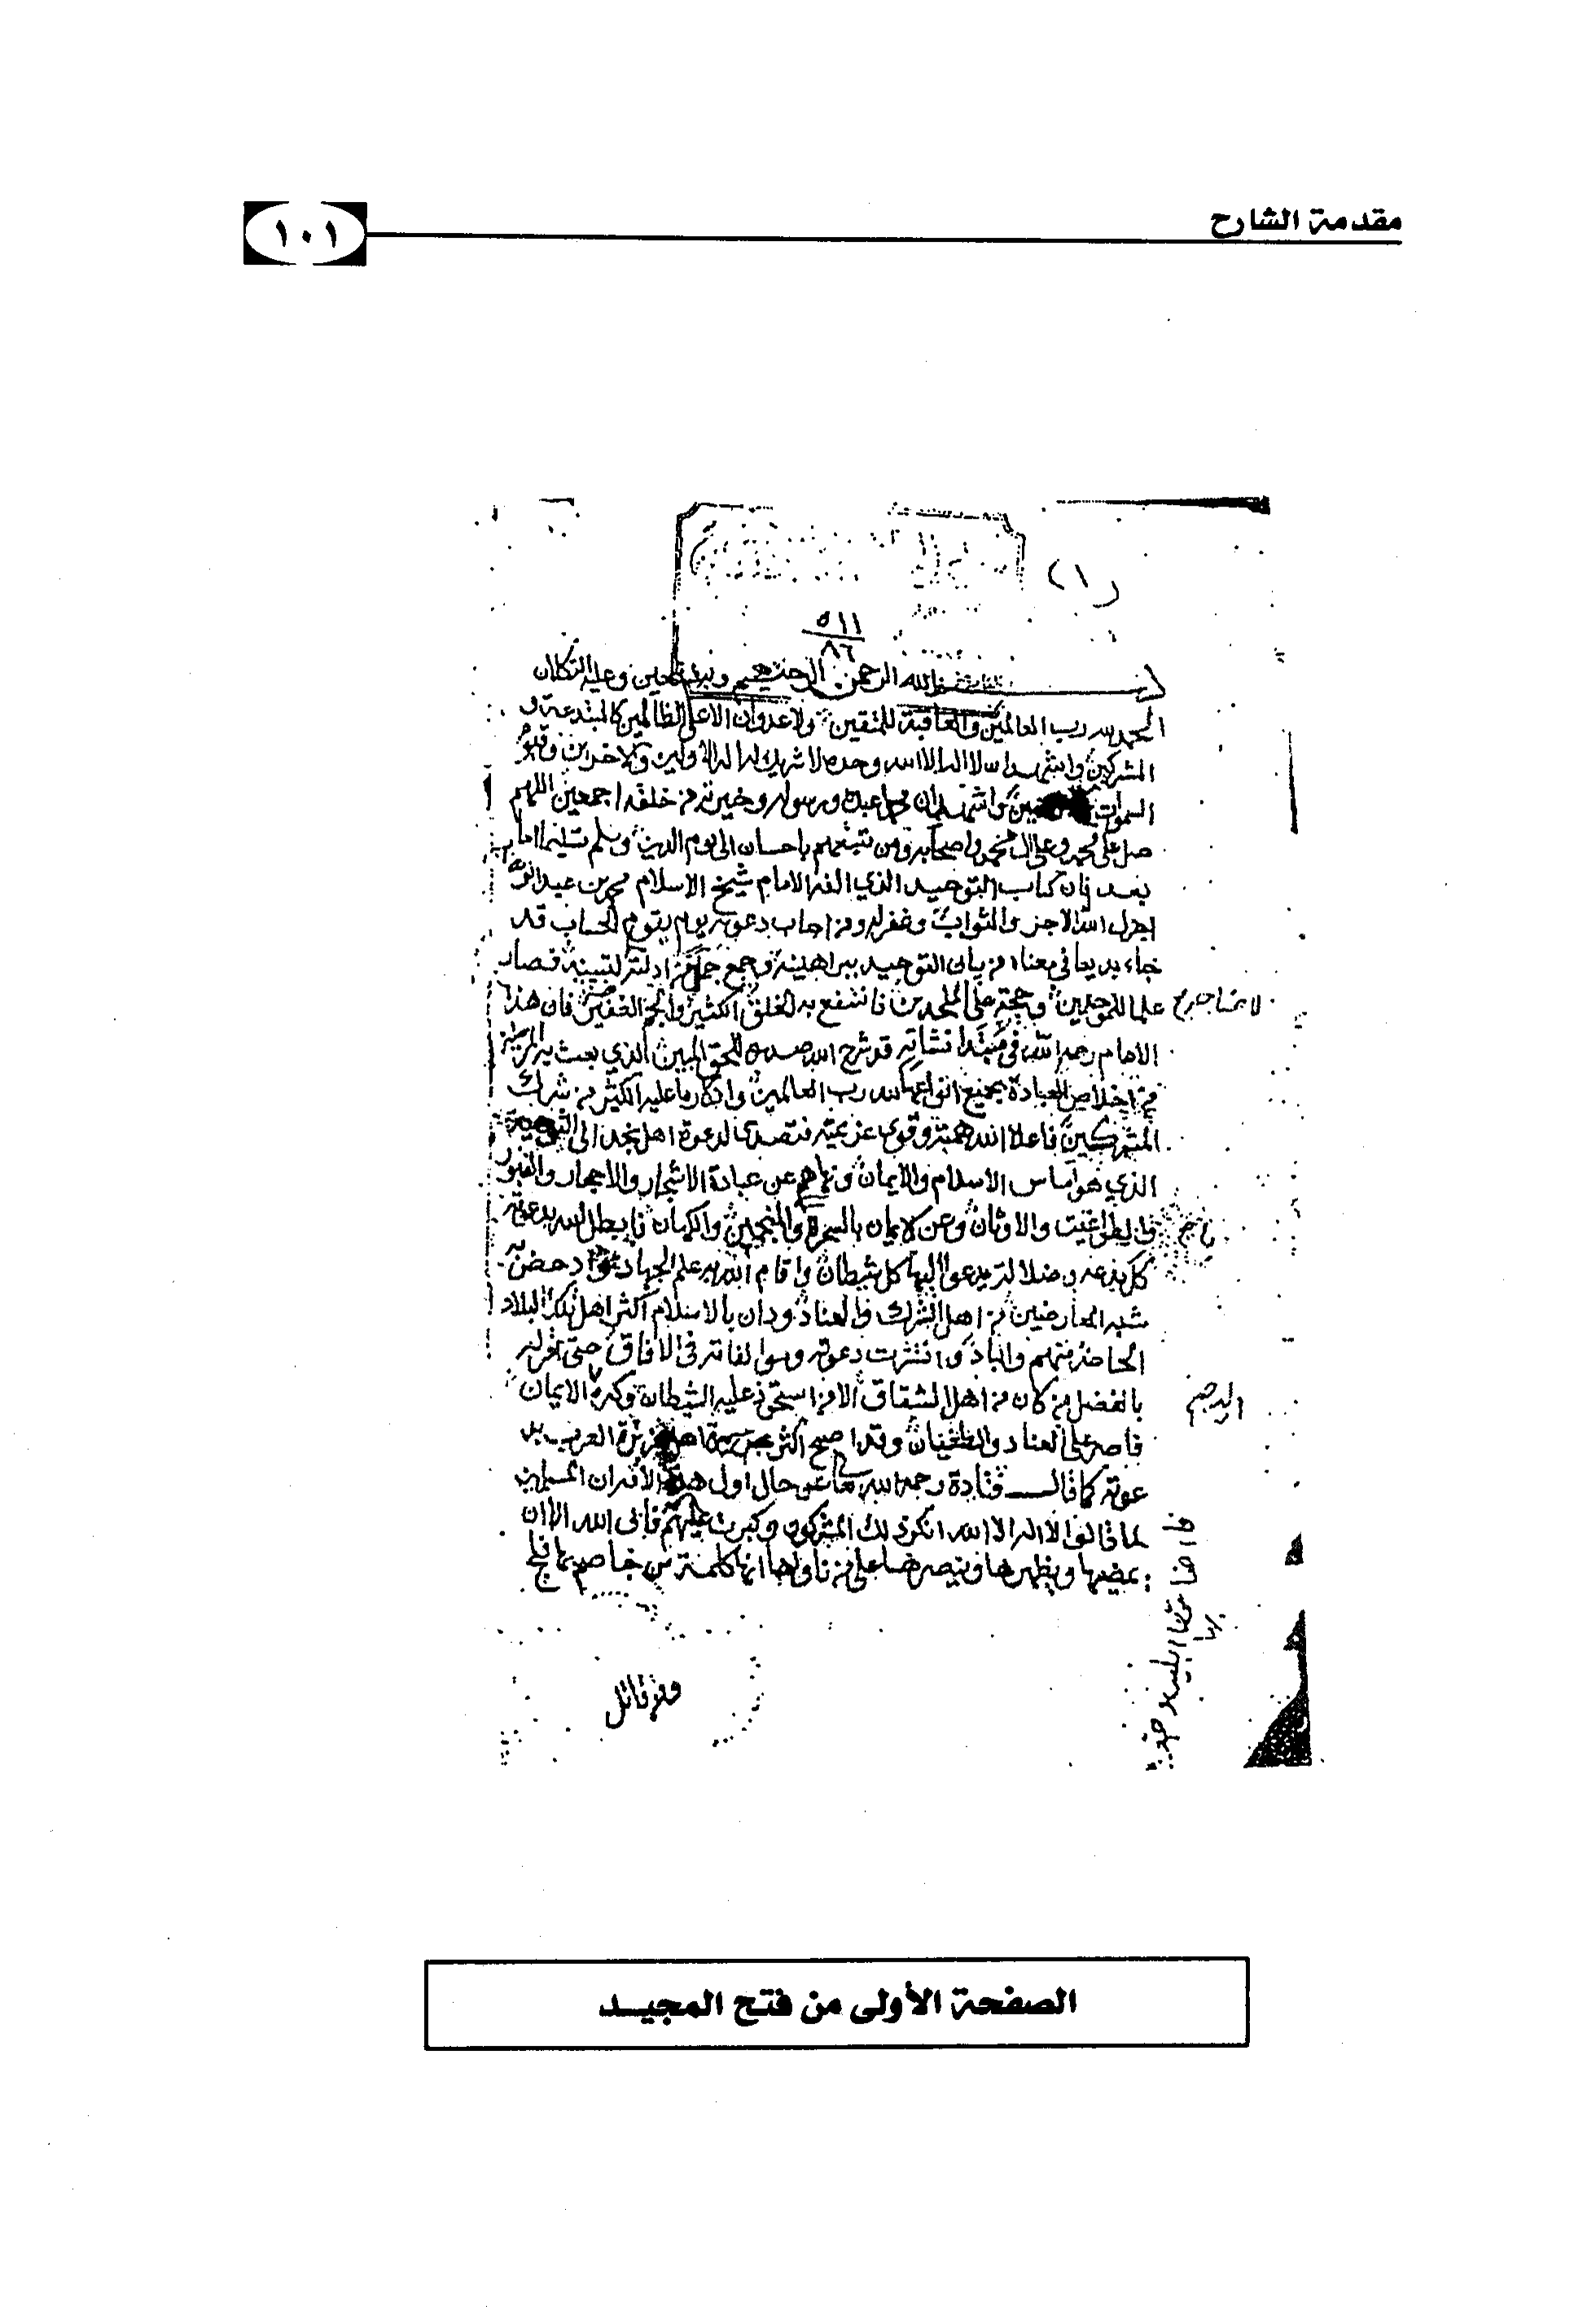 مقدمة الشارح
١٠١
(١)
٥١١
٨٦
بسم الله الرحمن الرحيم وبه نستعين وعليه التكلان
الحمد لله رب العالمين والعاقبة للمتقين ولا عدوان الا على الظالمين كالمبتدعة و
المشركين واشهد ان لا اله الا الله وحده لا شريك له اله الاولين والاخرين وقيوم
السموات واشهد ان محمدا عبده ورسوله وخيرته من خلقه اجمعين اللهم
صل على محمد وعلى ال محمد واصحابه ومن تبعهم باحسان الى يوم الدين وسلم تسليما اما
بعد فان كتاب التوحيد الذي الفه الامام شيخ الاسلام محمد بن عبد الوهاب
اجزل الله له الاجر والثواب وغفر له ومن اجاب دعوته يوم يقوم الحساب قد
جاء بديعا في معناه من بيان التوحيد ببراهينه وجمع جملا من ادلته لتبيينه فصار
علما للموحدين وحجة على الملحدين فانتفع به الخلق الكثير والجم الغفير فان هذا
الامام رحمه الله في مبتدا نشاته قد شرح الله صدره للحق المبين الذي بعث به المرسلين
من اخلاص العبادة بجميع انواعها لله رب العالمين وانكار ما عليه الكثير من شرك
المشركين فاعلا الله همته وقوى عزيمته فتصدى لدعوة اهل نجد الى التوحيد
الذي هو اساس الاسلام والايمان ونهاهم عن عبادة الاشجار والاحجار والقبور
والطواغيت والاوثان وعن الايمان بالسحرة والمنجمين والكهان فابطل الله بدعوته
كل بدعة وضلالة يدعوا اليها كل شيطان واقام الله به علم الجهاد وادحض به
شبه المعارضين من اهل الشرك والعناد ودان بالاسلام اكثر اهل تلك البلاد
الحاضر منهم والباد وانتشرت دعوته ومولفاته في الافاق حتى اقر له
بالفضل من كان من اهل الشقاق الا من استحوذ عليه الشيطان وكره الايمان
فاصر على العناد والطغيان وقد اصبح اكثر جزيرة العرب بد
عوته كما قال قتادة رحمه الله تعالى عن حال اول هذه الامة ان المسلمين
لما قالوا لا اله الا الله انكر ذلك المشركون وكبرت عليهم فابى الله الا ان
يمضيها ويظهرها وينصرها على من ناواها انها كلمة من خاصم بها فلج
ومن قاتل
اليه صح
الصفحة الأولى من فتح المجيد